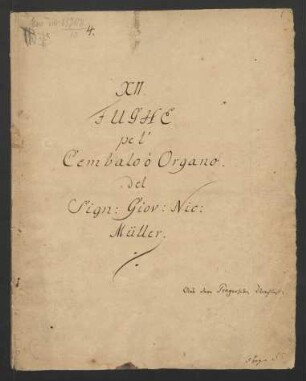 4.
XII
FUGHE
pel'
Cembalo ò Organo.
del
Sign: Giov: Nic:
Müller.
Aus dem